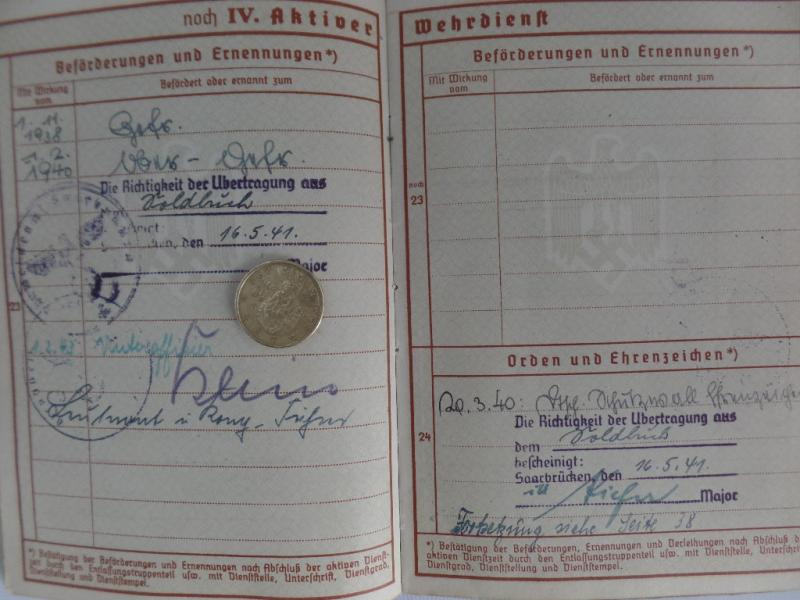 noch IV. Aktiver
Beförderungen und Ernennungen*)
Mit Wirkung
vom
Befördert oder ernannt zum
1. 11.
1938
Gefr.
1. 2.
1940
Ober-Gefr.
Die Richtigkeit der Übertragung aus
Soldbuch
den 16.5.41.
Major
23
Unteroffizier
Leutnant u. Komp.-Führer
*) Bestätigung der Beförderungen und Ernennungen nach Abschluß der aktiven Dienst-
zeit durch den Entlassungstruppenteil usw. mit Dienststelle, Unterschrift, Dienstgrad,
Dienststellung und Dienststempel.
Wehrdienst
Beförderungen und Ernennungen*)
Mit Wirkung
vom
Befördert oder ernannt zum
noch
23
Orden und Ehrenzeichen*)
20.3.40: Dtsch. Schutzwall Ehrenzeichen
Die Richtigkeit der Übertragung aus
dem Soldbuch
24
bescheinigt:
Saarbrücken, den 16.5.41.
Major
Fortsetzung siehe Seite 38
*) Bestätigung der Beförderungen, Ernennungen und Verleihungen nach Abschluß der
aktiven Dienstzeit durch den Entlassungstruppenteil usw. mit Dienststelle, Unterschrift,
Dienstgrad, Dienststellung und Dienststempel.